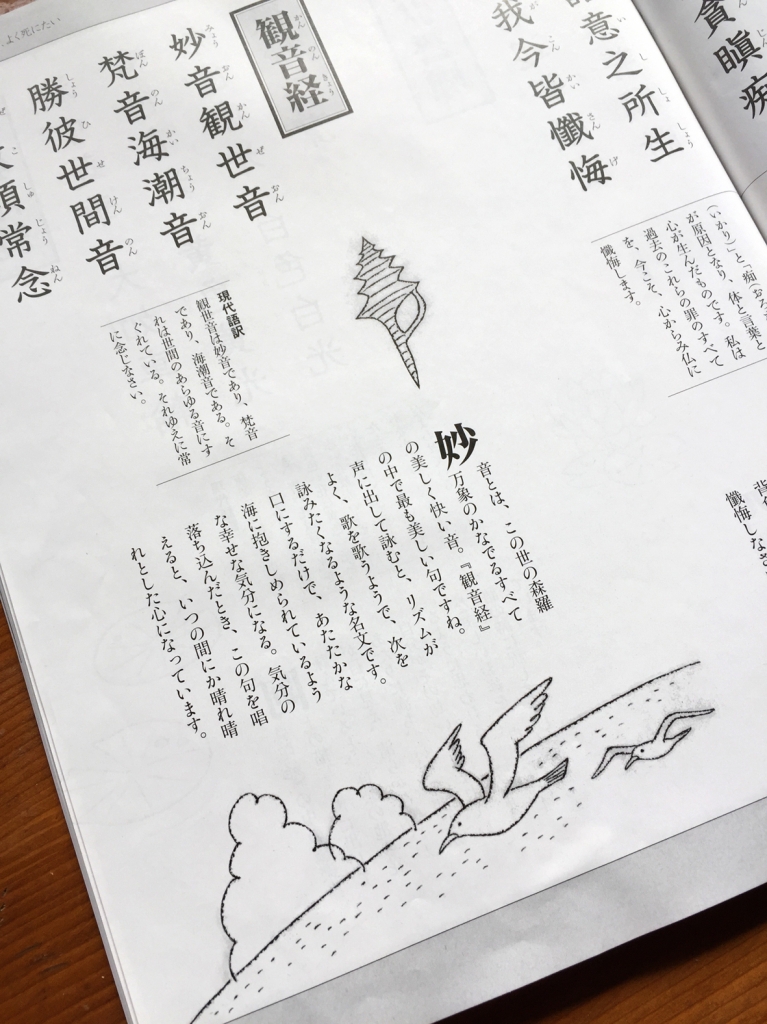 よく死にたい
貪瞋痴
意之所生
いししょしょう
我今皆懺悔
がこんかいさんげ
（いかり）」と「痴（おろ
が原因となり、体と言葉と
心が生んだものです。私は
過去のこれらの罪のすべて
を、今こそ、心からみ仏に
懺悔します。
懺悔しなさ
観音経
かんのんきょう
妙音観世音
みょうおんかんぜおん
梵音海潮音
ぼんのんかいちょうおん
勝彼世間音
しょうひせけんのん
須常念
しゅじょうねん
現代語訳
観世音は妙音であり、梵音
であり、海潮音である。そ
れは世間のあらゆる音にす
ぐれている。それゆえに常
に念じなさい。
妙音とは、この世の森羅
万象のかなでるすべて
の美しく快い音。『観音経』
の中で最も美しい句ですね。
声に出して詠むと、リズムが
よく、歌を歌うようで、次を
詠みたくなるような名文です。
口にするだけで、あたたかな
海に抱きしめられているよう
な幸せな気分になる。気分の
落ち込んだとき、この句を唱
えると、いつの間にか晴れ晴
れとした心になっています。